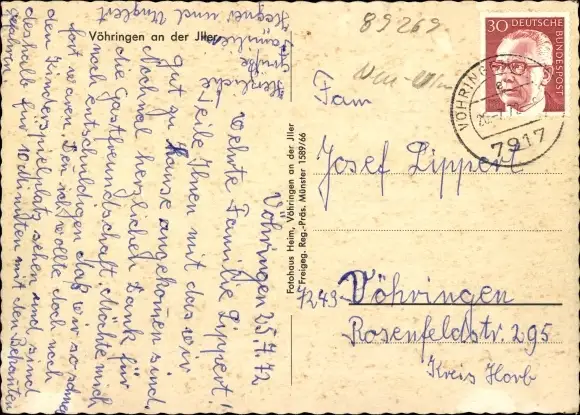 Vöhringen an der Jller
Vöhringen 25.7.72
Werte Familie Lippert!
Teile Ihnen mit das wir
gut zu Hause angekomen sind.
Nochmal herzlichen Dank für
die Gastfreundschaft. Möchte mich
noch entschuldigen das wir so schnell
fort waren. Den ich wollte doch noch
den Kinderspielplatz sehen und sind
deshalb für 10 Minuten mit den Bekannten
gefahren.
Herzliche
Grüße
Familie
Wegner und
Fotohaus Heim, Vöhringen an der Jller
Freigeg. Reg.-Präs. Münster 1589/66
89269
30 DEUTSCHE BUNDESPOST
VÖHRINGEN
7917
Fam
Josef Lippert
7243 Vöhringen
Rosenfeldstr. 295
Kreis Horb